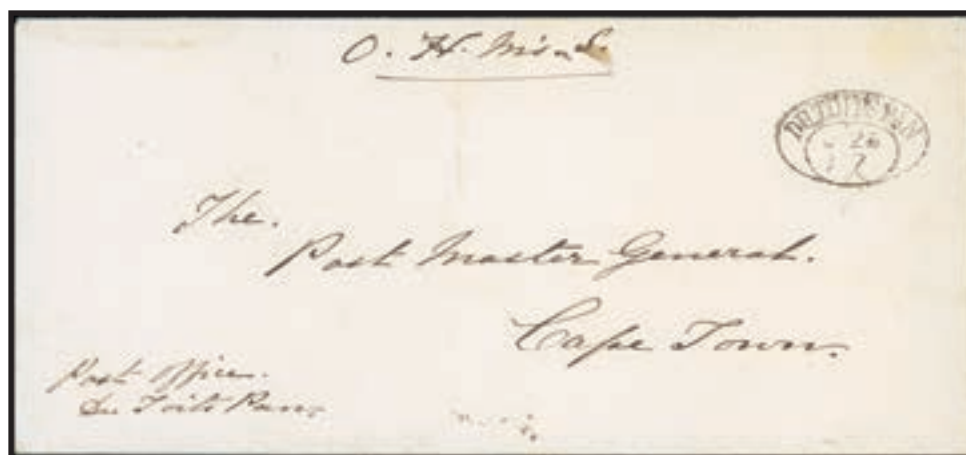 O. H. M's. S.
DU TOITS PAN
26
7
The.
Post Master General.
Cape Town.
Post Office.
Du Toits Pan.